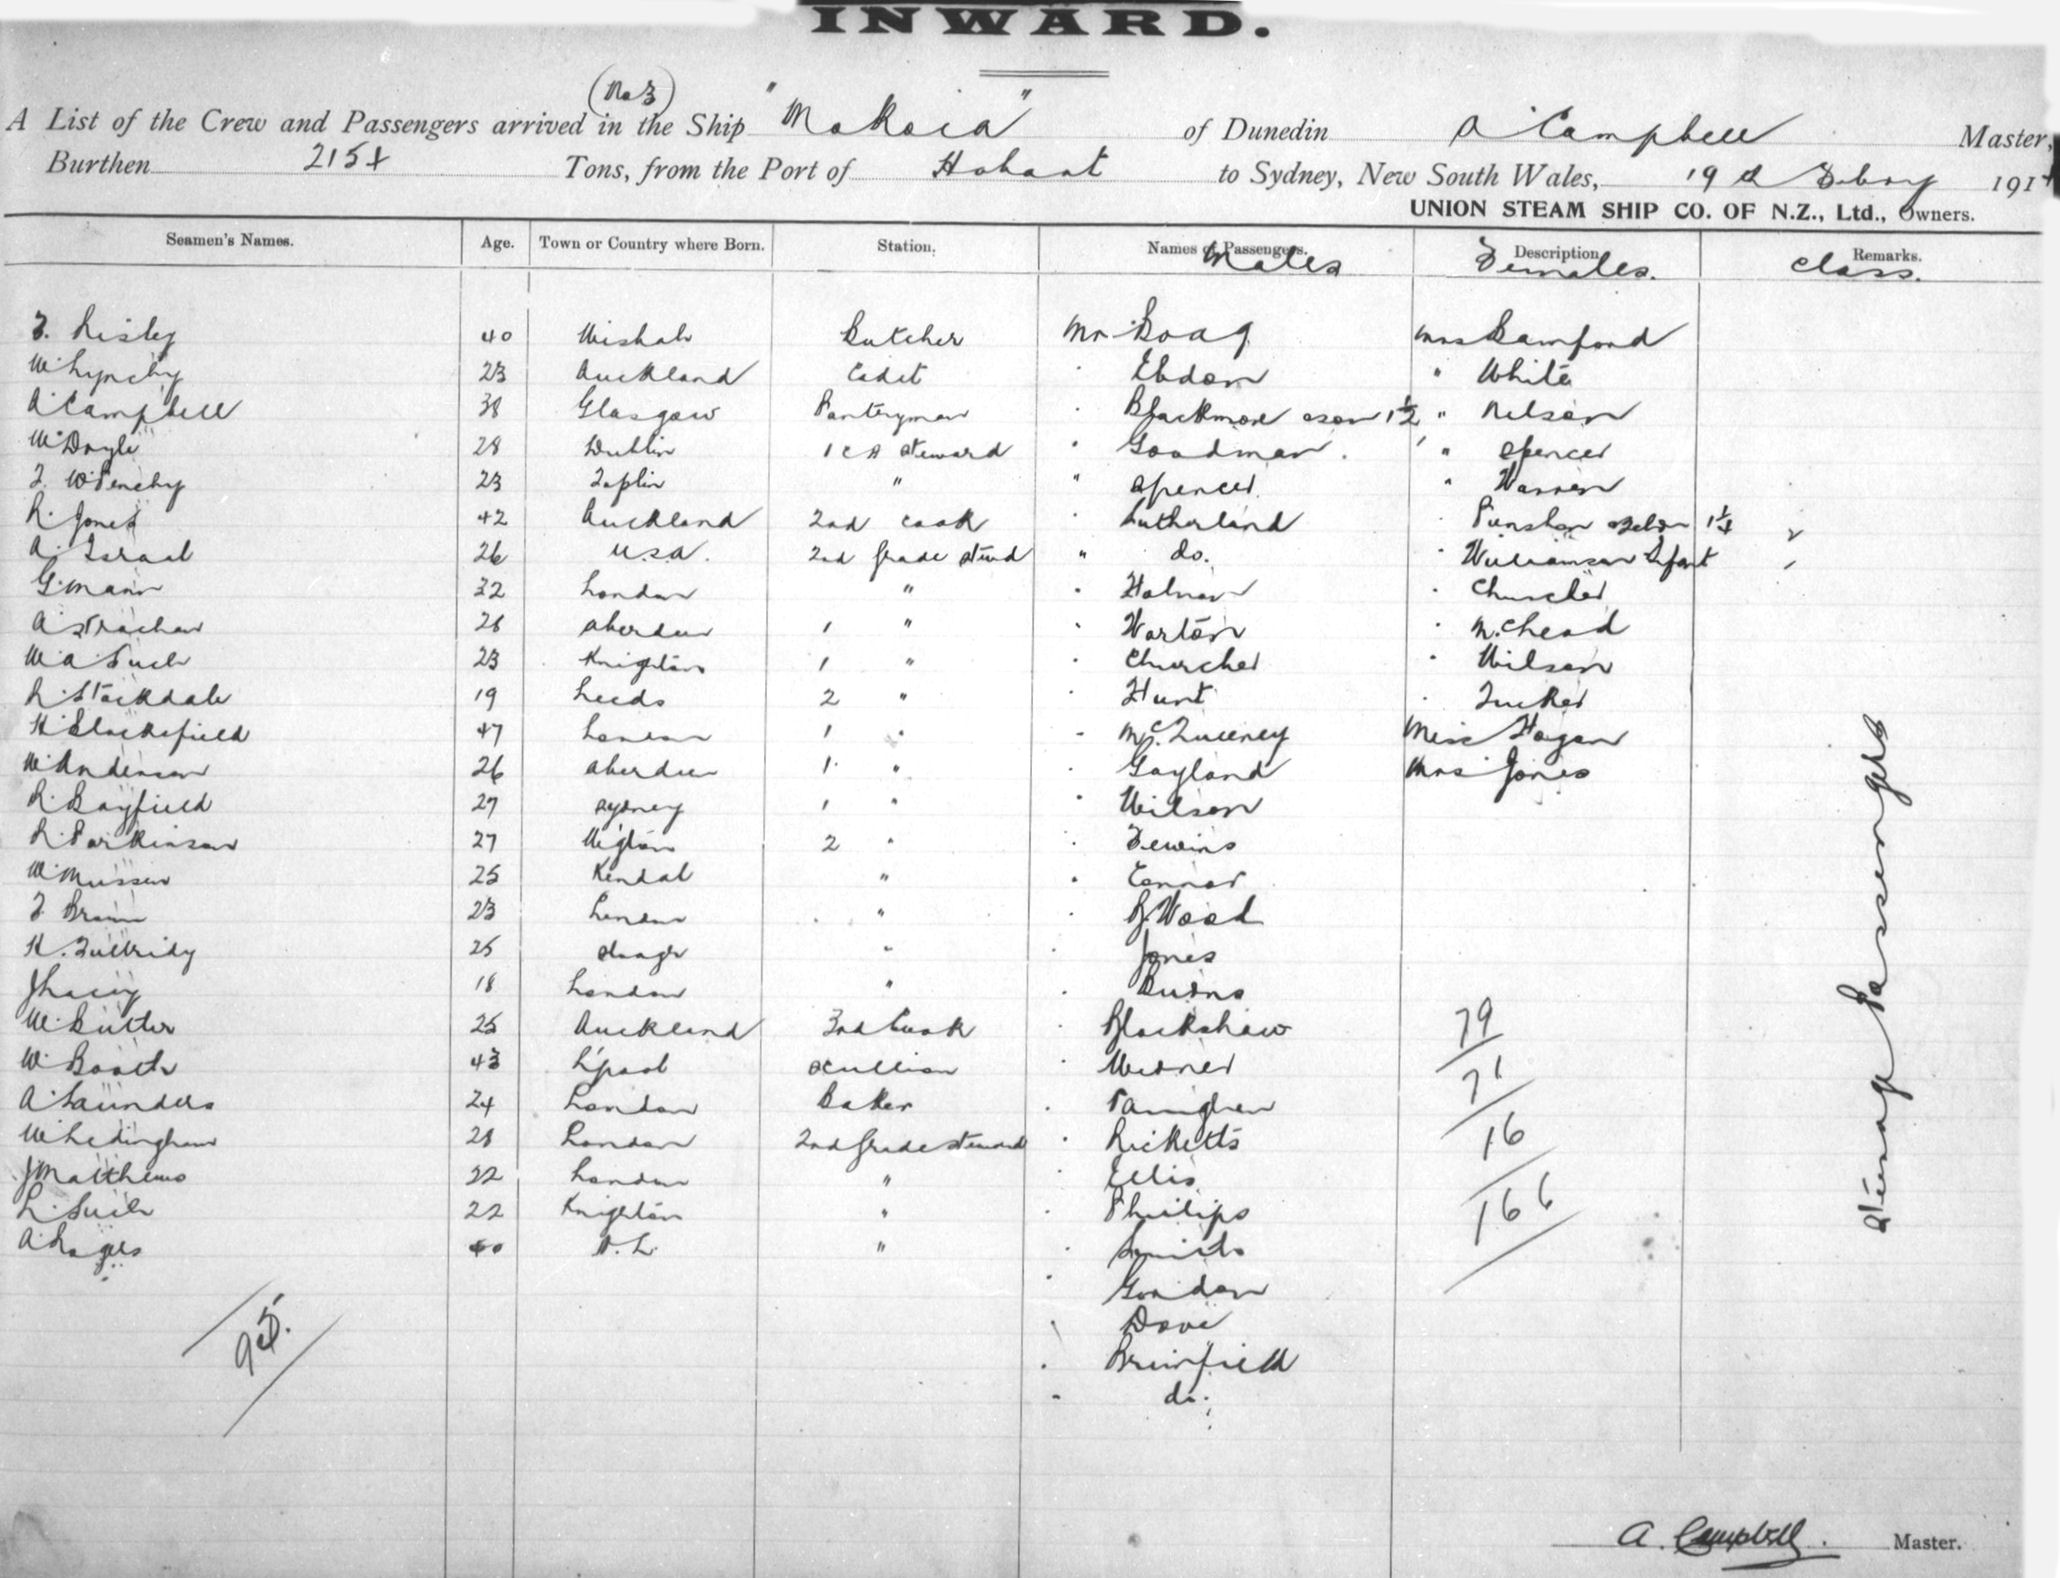 INWARD.
(No 3)
A List of the Crew and Passengers arrived in the Ship "Mokoia" of Dunedin A Campbell Master,
Burthen 2154 Tons, from the Port of Hobart to Sydney, New South Wales, 19th Febry 1914
UNION STEAM SHIP CO. OF N.Z., Ltd., Owners.
Seamen's Names. Age. Town or Country where Born. Station. Names of Passengers. Description Remarks.
Males Females. Class.
F. Risley 40 Wishaw Butcher Mr Boag Mrs Bamford
W. Lynchy 23 Auckland Cadet " Ebdon " White
A Campbell 38 Glasgow Pantryman " Blackmore & son 1 1/2 " Nelson
W Doyle 28 Dublin 1 C A Steward " Goodman " Spencer
23 " " Spencer " Warren
R. Jones 42 Auckland 2nd Cook Sutherland " Punshon 1 1/4
A. Israel 26 U.S.A. 2nd Grade Stwd " do. " Williamson Infant
G. Mann 32 London " " Holman " Churcher
A Strachan 28 Aberdeen 1 " " Warton " McHead
W. A. Such 23 Knighton 1 " " Churcher " Wilson
R. Stockdale 19 Leeds 2 " " Hunt " Tucker
H. Blackfield 47 London 1 " " McSweeney Miss Hogan
W. Anderson 26 Aberdeen 1 " " Gayland Mrs Jones
R. Bayfield 27 Sydney 1 " " Wilson
R. Parkinson 27 Wigton 2 " " Fewins
W. Musson 25 Kendal " " Connor
F. Brown 23 London " " G. Wood
H. 25 Slough " Jones
J Lacey 18 London " " Burns
W. Butter 25 Auckland 3rd Cook " Blackshaw
W. Booth 43 L'pool Scullion " Widner
A. Saunders 24 London Baker " Vaughan
W. Ledingham 28 London 2nd Grade Steward " Ricketts
J Matthews 22 London " Ellis
L. Such 22 Knighton " " Phillips
A. Rogers 40 " " Smith
" Gordon
" Dove
" Brimfield
" do.
79
71
16
166
95.
Steerage Passengers
A. Campbell. Master.